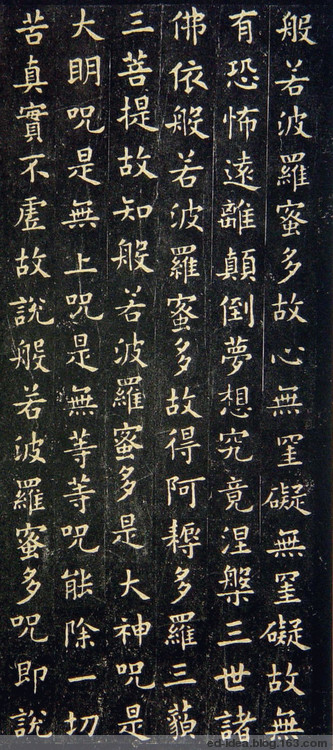 般若波羅蜜多故心無罣礙無罣礙故無
有恐怖遠離顛倒夢想究竟涅槃三世諸
佛依般若波羅蜜多故得阿耨多羅三藐
三菩提故知般若波羅蜜多是大神呪是
大明呪是無上呪是無等等呪能除一切
苦真實不虛故說般若波羅蜜多呪即說
ed-idea.blog.163.com